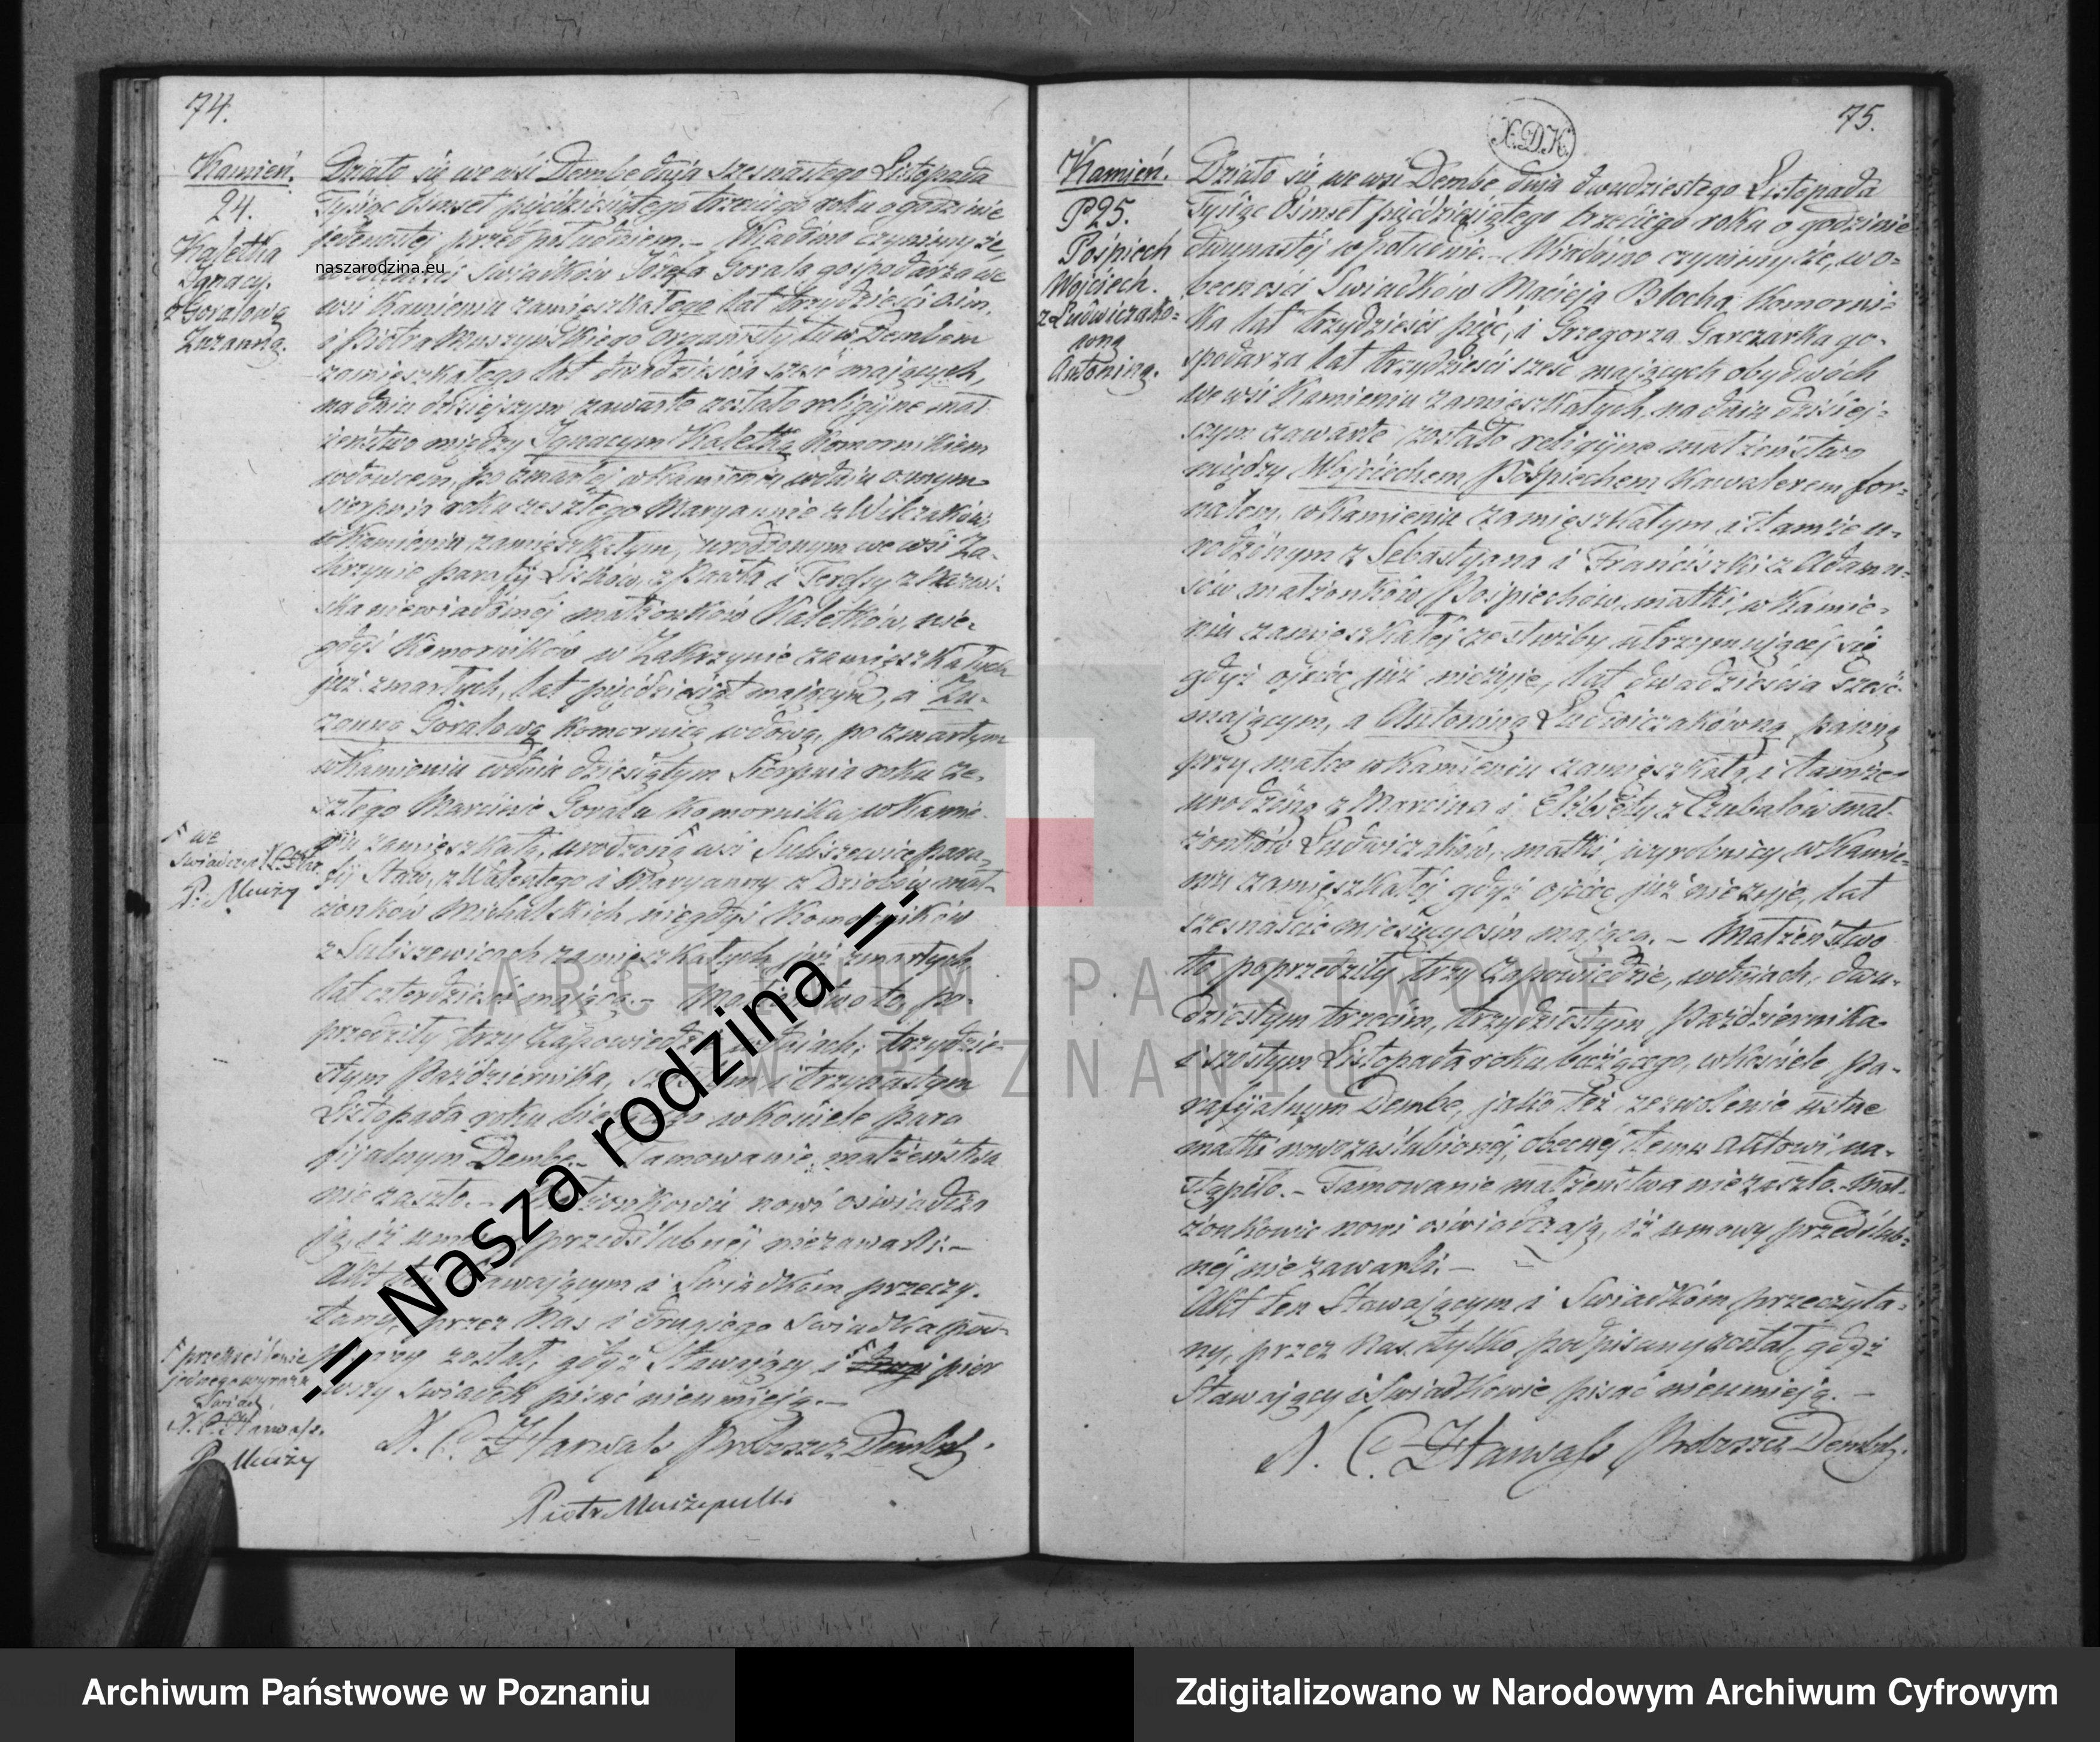 74.
Kamień.
24.
Kaletka
Ignacy.
z Goralową
Zuzanną.
Działo się we wsi Dembe dnia szesnastego Listopada
Tysiąc Ośmset pięćdziesiątego trzeciego roku o godzinie
jedenastej przed południem. – Wiadomo czynimy że,
w obecności Swiadków Józefa Gorala gospodarza we
wsi Kamieniu zamięszkałego lat trzydzieści ośm,
i Piotra Muszyńskiego Organisty tu w Dembem
zamięszkałego lat dwadzieścia sześć mających,
na dniu dzisiejszym zawarte zostało religijne mał
żeństwo między Ignacym Kaletką Komornikiem
wdowcem, po zmarłej w Kamieniu w dniu osmym
sierpnia roku zeszłego Maryannie z Wilczaków
w Kamieniu zamięszkałym, urodzonym we wsi Za-
krzynie parafij Lisków z Pawła i Teressy z nazwi-
ska niewiadomej małżonków Kaletków, nie-
gdyś Komorników w Zakrzynie zamięszkałych
już zmarłych, lat pięćdziesiąt mającym, a Zu-
zanną Goralową Komornicą wdową, po zmarłym
w Kamieniu w dniu dziesiątym Sierpnia roku ze-
szłego Marcinie Goralu Komorniku, w Kamie-
niu zamięszkałą, urodzoną wsi Suliszewice para-
fij Staw, z Walentego i Maryanny z Dziobów mał-
żonków Michalskich, niegdyś Komorników
z Suliszewicach zamięszkałych już zmarłych
lat czterdzieści mającą. – Małżeństwo to, po-
przedziły trzy Zapowiedzie w dniach: trzydzie-
stym Października, szóstym i trzynastym
Listopada roku bieżącego w Kościele para
fijalnym Dembe. – Tamowanie małżeństwa
nie zaszło. – Małżonkowie nowi oświadcza
ją, iż umowy przedślubnej nie zawarli. –
Akt ten Stawającym i Swiadkom przeczy-
tany, przez Nas i drugiego Swiadka pod-
pisany został, gdyż Stawający i pier
wszy Swiadek pisać nieumieją. –
N. C. Hanwass Proboszcz Dembski.
Piotr Muszyński
we
P. Muszy
przekreślenie
jednego wyrazu
Świad.
P. Muszy
75.
X.D.K.
Kamień.
25.
Pośpiech
Wojciech.
z Ludwiczako-
wną
Antoniną.
Działo się we wsi Dembe dnia dwudziestego Listopada
Tysiąc Ośmset pięćdziesiątego trzeciego roku o godzinie
dwunastej w południe. – Wiadomo czynimy że, w o-
becności Swiadków Macieja Błocha Komorni-
ka lat trzydzieści pięć, i Grzegorza Garczarka go-
spodarza lat trzydzieści sześć mających obydwóch
we wsi Kamieniu zamięszkałych, na dniu dzisiej-
szym zawarte zostało religijne małżeństwo
między Wojciechem Pośpiechem Kawalerem for-
nalem, w Kamieniu zamięszkałym i tamże u-
rodzonym z Sebastyana i Franciszki z Adamu-
siów małżonków Pośpiechów, matki w Kamie-
niu zamięszkałej ze służby utrzymującej się
gdyż ojciec już nieżyje, lat dwadzieścia sześć
mającym, a Antoniną Ludwiczakówną, panną
przy matce w Kamieniu zamięszkałą, i tamże
urodzoną z Marcina i Elżbiety z Czubałów mał-
żonków Ludwiczaków, matki wyrobnicy w Kamie-
niu zamięszkałej gdyż ojciec już nieżyje, lat
szesnaście miesięcy ośm mającą. – Małżeństwo
to poprzedziły trzy Zapowiedzie, w dniach, dwu-
dziestym trzecim, trzydziestym, Października
i szóstym Listopada roku bieżącego, w Kościele pa-
rafijalnym Dembe, jako też zezwolenie ustne
matki nowozaślubionej, obecnej temu Aktowi na-
stąpiło. – Tamowanie małżeństwa nie zaszło. Mał-
żonkowie nowi oświadczają, iż umowy przedślub-
nej nie zawarli. –
Akt ten Stawającym i Swiadkom przeczyta-
ny, przez Nas tylko podpisany został, gdyż
Stawający i Swiadkowie pisać nieumieją. –
N. C. Hanwass Proboszcz Dembski.
naszarodzina.eu
.:= Nasza rodzina =:.
ARCHIWUM PAŃSTWOWE
W POZNANIU
Archiwum Państwowe w Poznaniu
Zdigitalizowano w Narodowym Archiwum Cyfrowym